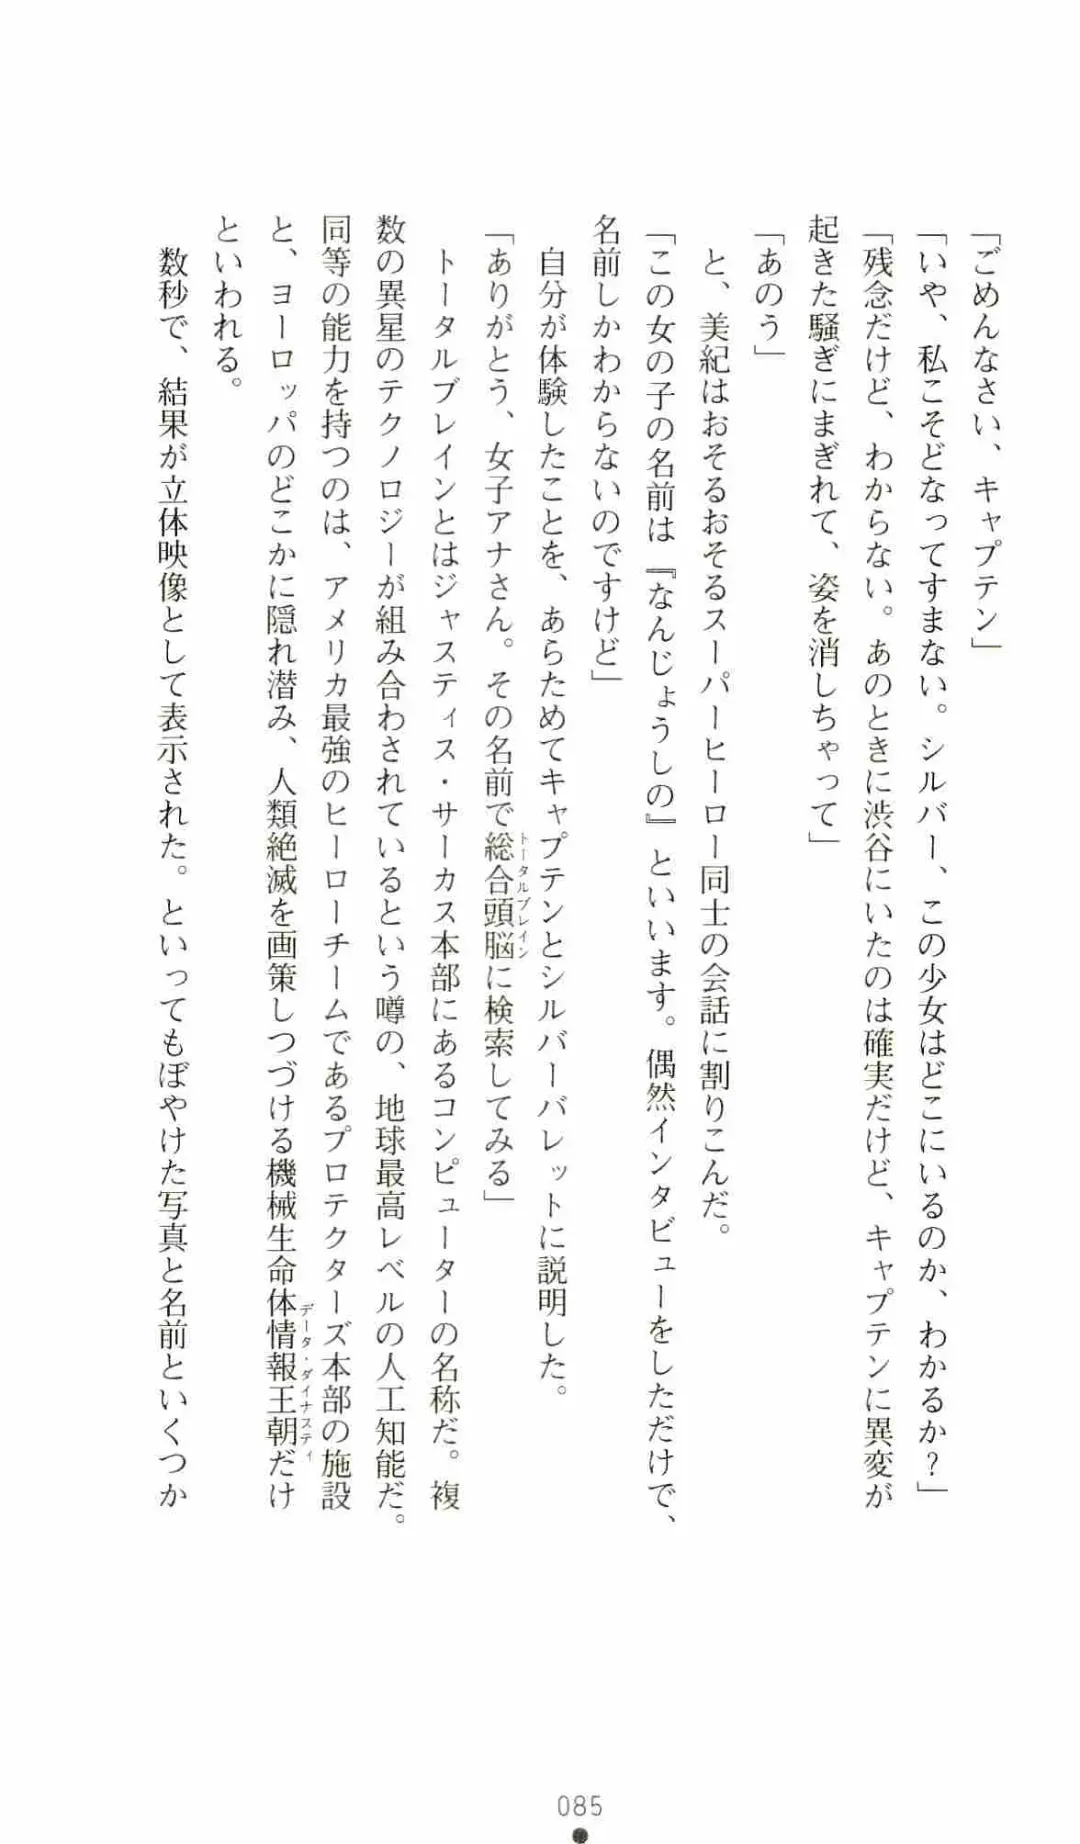 「ごめんなさい、キャプテン」
「いや、私こそどなってすまない。シルバー、この少女はどこにいるのか、わかるか？」
「残念だけど、わからない。あのときに渋谷にいたのは確実だけど、キャプテンに異変が
起きた騒ぎにまぎれて、姿を消しちゃって」
「あのう」
　と、美紀はおそるおそるスーパーヒーロー同士の会話に割りこんだ。
「この女の子の名前は『なんじょうしの』といいます。偶然インタビューをしただけで、
名前しかわからないのですけど」
　自分が体験したことを、あらためてキャプテンとシルバーバレットに説明した。
「ありがとう、女子アナさん。その名前で総合頭脳トータルブレインに検索してみる」
　トータルブレインとはジャスティス・サーカス本部にあるコンピューターの名称だ。複
数の異星のテクノロジーが組み合わされているという噂の、地球最高レベルの人工知能だ。
同等の能力を持つのは、アメリカ最強のヒーローチームであるプロテクターズ本部の施設
と、ヨーロッパのどこかに隠れ潜み、人類絶滅を画策しつづける機械生命体情報王朝データ・ダイナスティだけ
といわれる。
　数秒で、結果が立体映像として表示された。といってもぼやけた写真と名前といくつか
085